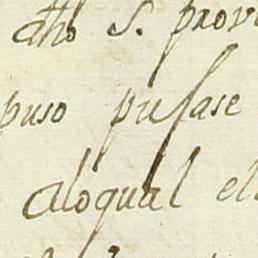 dho S. prov
puso pusase
aloqual el